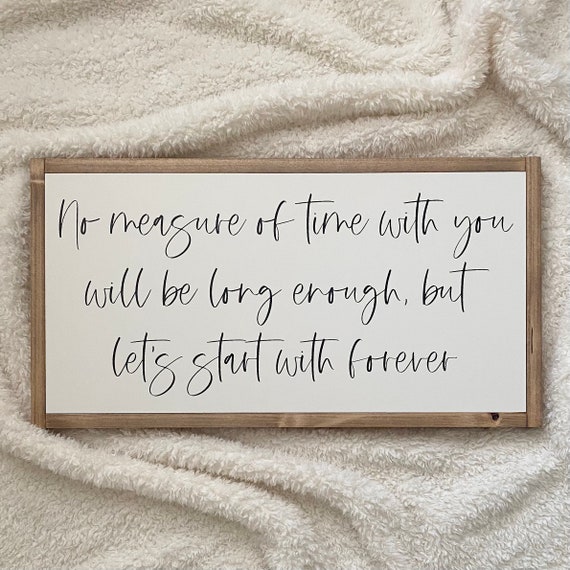 No measure of time with you
will be long enough, but
let's start with forever